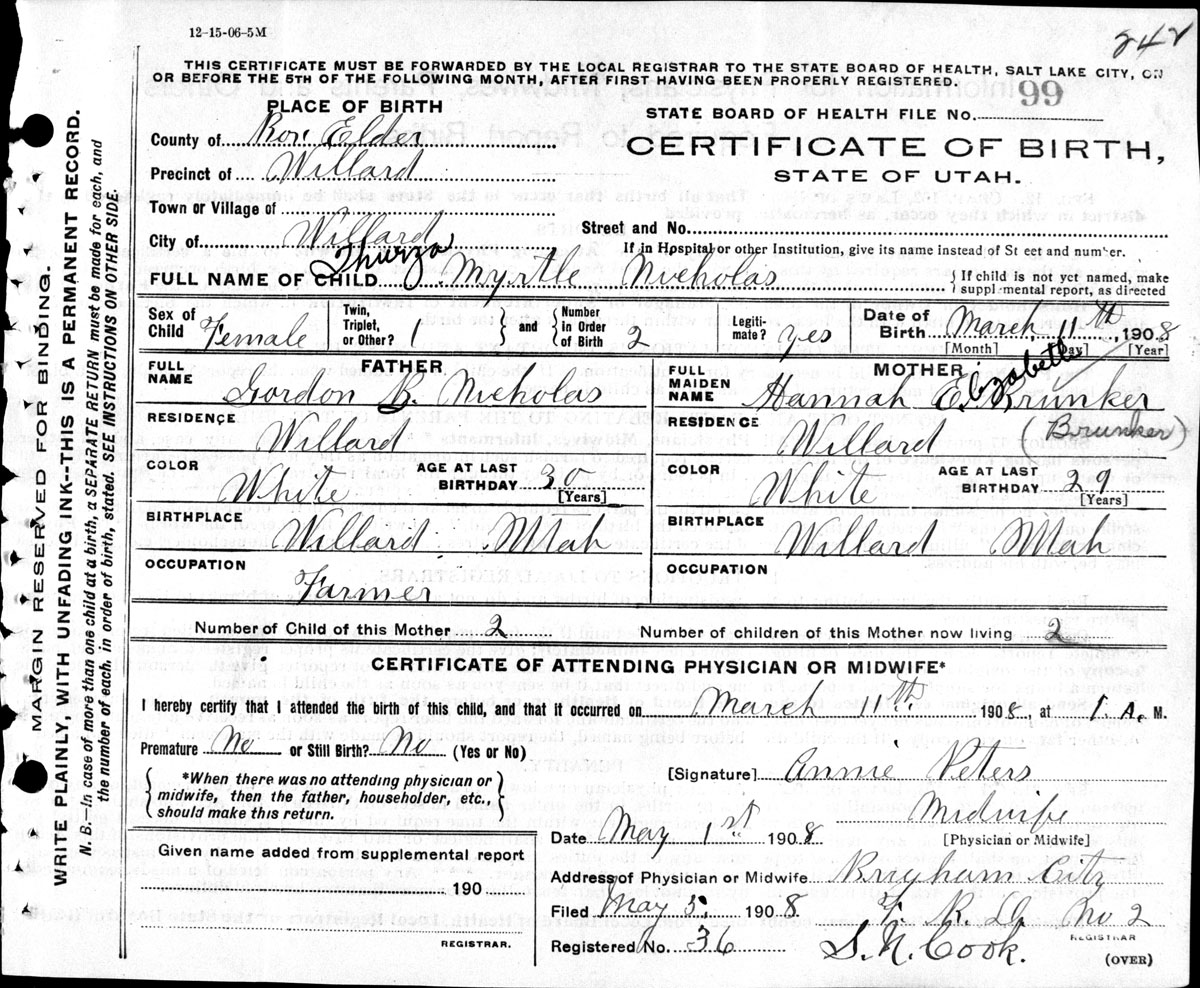 12-15-06-5M
242
THIS CERTIFICATE MUST BE FORWARDED BY THE LOCAL REGISTRAR TO THE STATE BOARD OF HEALTH, SALT LAKE CITY, ON
OR BEFORE THE 5TH OF THE FOLLOWING MONTH, AFTER FIRST HAVING BEEN PROPERLY REGISTERED.
MARGIN RESERVED FOR BINDING.
WRITE PLAINLY, WITH UNFADING INK--THIS IS A PERMANENT RECORD.
N. B.—In case of more than one child at a birth, a SEPARATE RETURN must be made for each, and
the number of each, in order of birth, stated. SEE INSTRUCTIONS ON OTHER SIDE.
PLACE OF BIRTH
STATE BOARD OF HEALTH FILE No. 99
County of Box Elder
CERTIFICATE OF BIRTH,
Precinct of Willard
STATE OF UTAH.
Town or Village of
Street and No.
City of Willard
If in Hospital or other Institution, give its name instead of St eet and number.
Thurza
FULL NAME OF CHILD Myrtle Nicholas
{ If child is not yet named, make
supplemental report, as directed
Sex of Child Female
Twin, Triplet, or Other? 1
{ and } Number in Order of Birth 2
Legiti- mate? yes
Date of Birth March 11th, 1908
[Month] [Day] [Year]
FATHER
FULL NAME Gordon B. Nicholas
MOTHER
Elizabeth
FULL MAIDEN NAME Hannah E. Brunker
(Brunker)
RESIDENCE Willard
RESIDENCE Willard
COLOR White
AGE AT LAST BIRTHDAY 30
[Years]
COLOR White
AGE AT LAST BIRTHDAY 29
[Years]
BIRTHPLACE Willard Utah
BIRTHPLACE Willard Utah
OCCUPATION Farmer
OCCUPATION
Number of Child of this Mother 2
Number of children of this Mother now living 2
CERTIFICATE OF ATTENDING PHYSICIAN OR MIDWIFE*
I hereby certify that I attended the birth of this child, and that it occurred on March 11th 1908, at 1 A. M.
Premature No or Still Birth? No (Yes or No)
{ *When there was no attending physician or
midwife, then the father, householder, etc.,
should make this return. }
[Signature] Annie Peters
Midwife
[Physician or Midwife]
Date May 1st 1908
Given name added from supplemental report
190
REGISTRAR.
Address of Physician or Midwife Brigham City
Filed May 5, 1908
No 2
Registered No. 36
S. N. Cook.
REGISTRAR
(OVER)